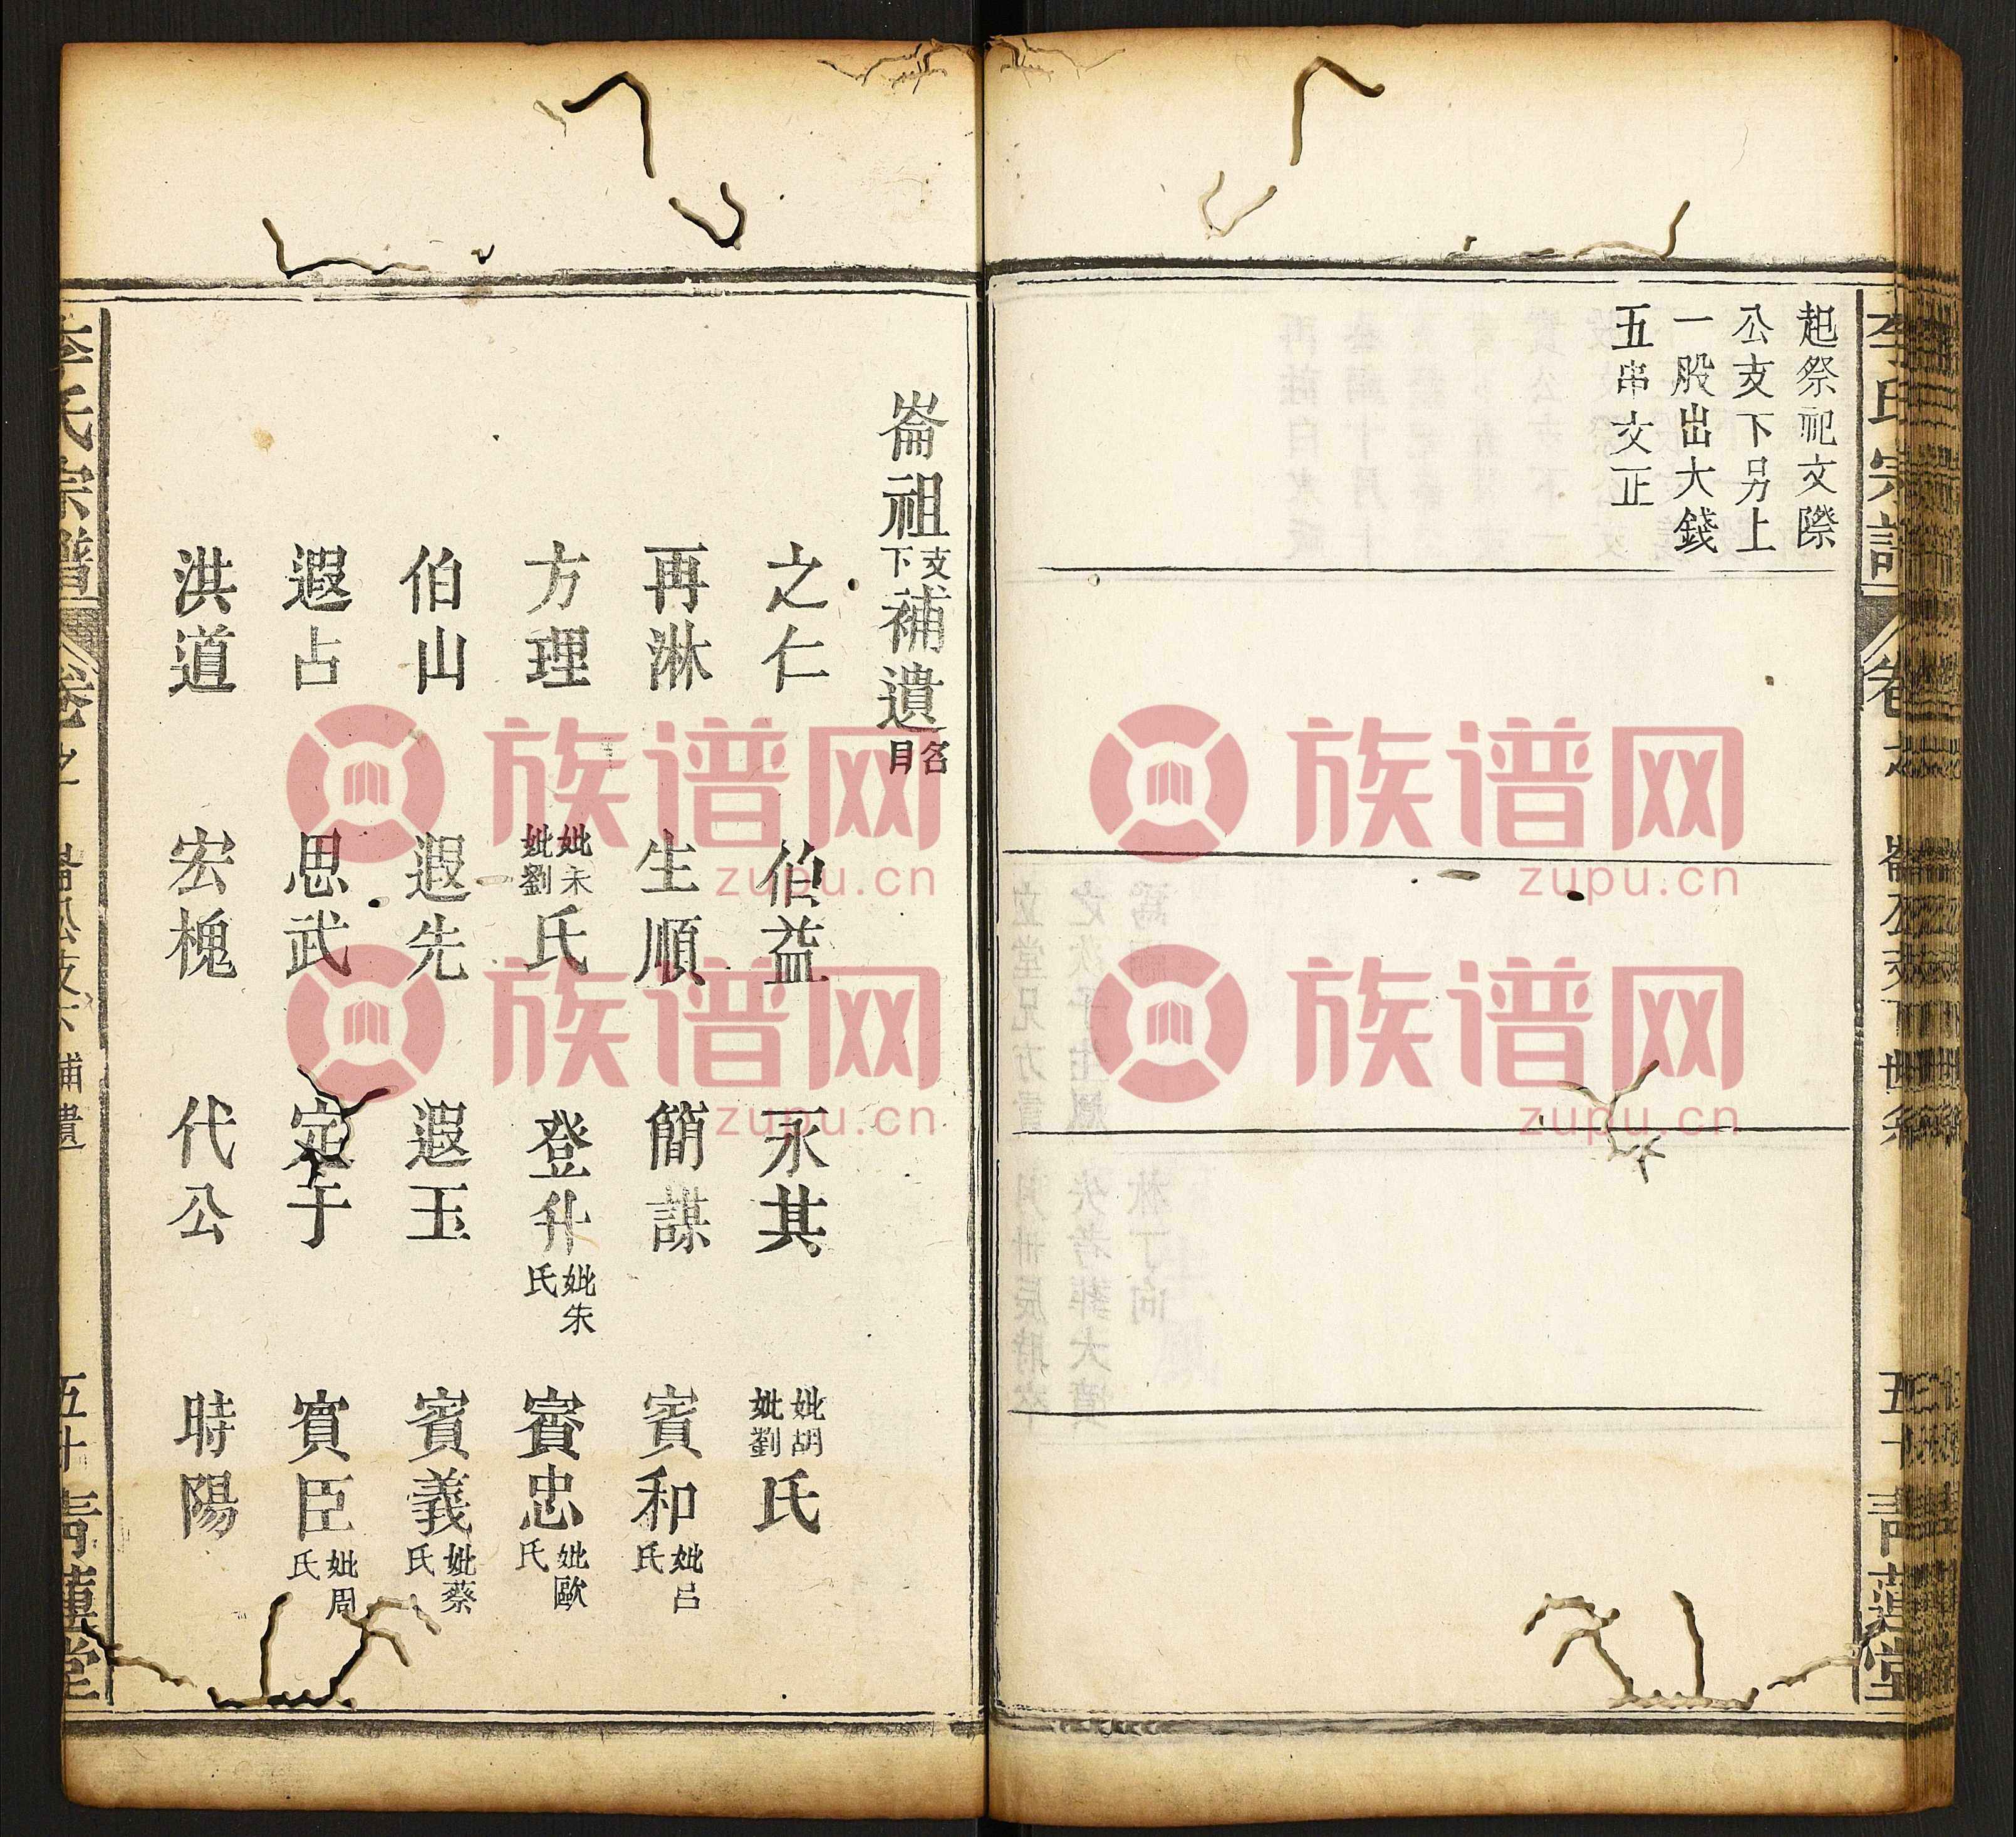 起祭祀文際
公支下另上
一股出大錢
五串文正
崙祖支下補遺名目
之仁 伯益 永其 妣胡妣劉氏
再淋 生順 簡謀 賓和妣呂氏
方理 妣宋妣劉氏 登升妣朱氏 賓忠妣歐氏
伯山 遐先 遐玉 賓義妣蔡氏
遐占 思武 定于 賓臣妣周氏
洪道 宏槐 代公 時陽
李氏宗譜 卷之 崙公支下補遺 五十 青蓮堂
李氏宗譜 卷之 崙公支下世系 五十 青蓮堂
族谱网
zupu.cn
族谱网
zupu.cn
族谱网
zupu.cn
族谱网
zupu.cn